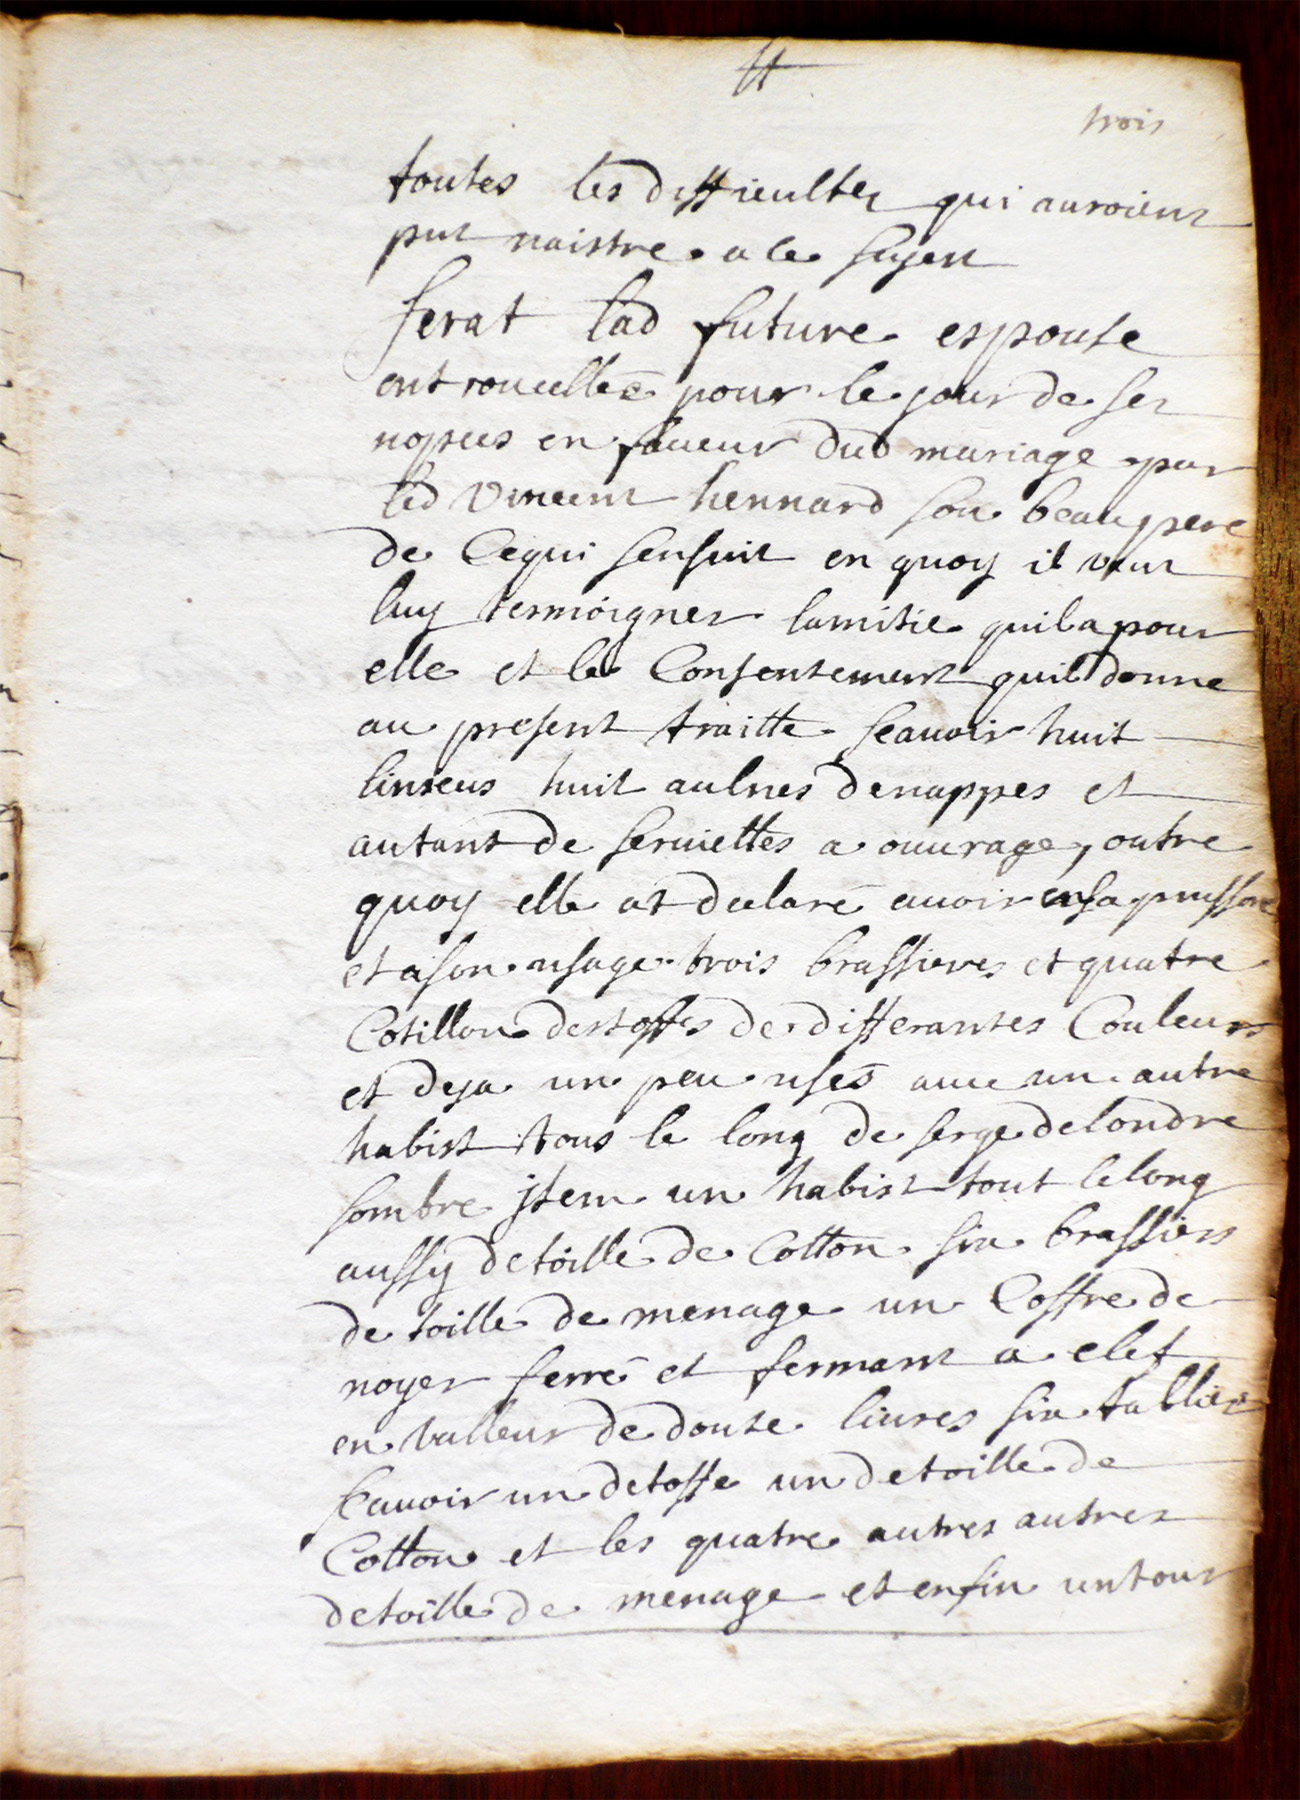 trois
toutes les difficultez qui auroient
put naistre a ce sujest
serat lad future espouse
entrouellée pour le jour de ses
nopces en faueur dud mariage par
led Vincent hennard son beau pere
de Cequi sensuit en quoy il veut
luy tesmoigner lamitie quil a pour
elle et le Consentement quil donne
au present traitte scauoir huit
linseus huit aulnes denappes et
autant de seruiettes a ouurage, outre
quoy elle at declaré auoir en sa puissance
et a son usage trois brassieres et quatre
Cotillon destoffes de differantes Couleurs
et deja un peu usés auec un autre
habist tous le long de serge delondre
sombre jtem un habist tout lelong
aussy detoille de Cotton six brassiers
de toille de menage un Coffre de
noyer ferré et fermant a clef
en valleur de douse liures six tablies
scauoir un detoffe un detoille de
Cotton et les quatre autres autres
detoille de menage et enfin un tour